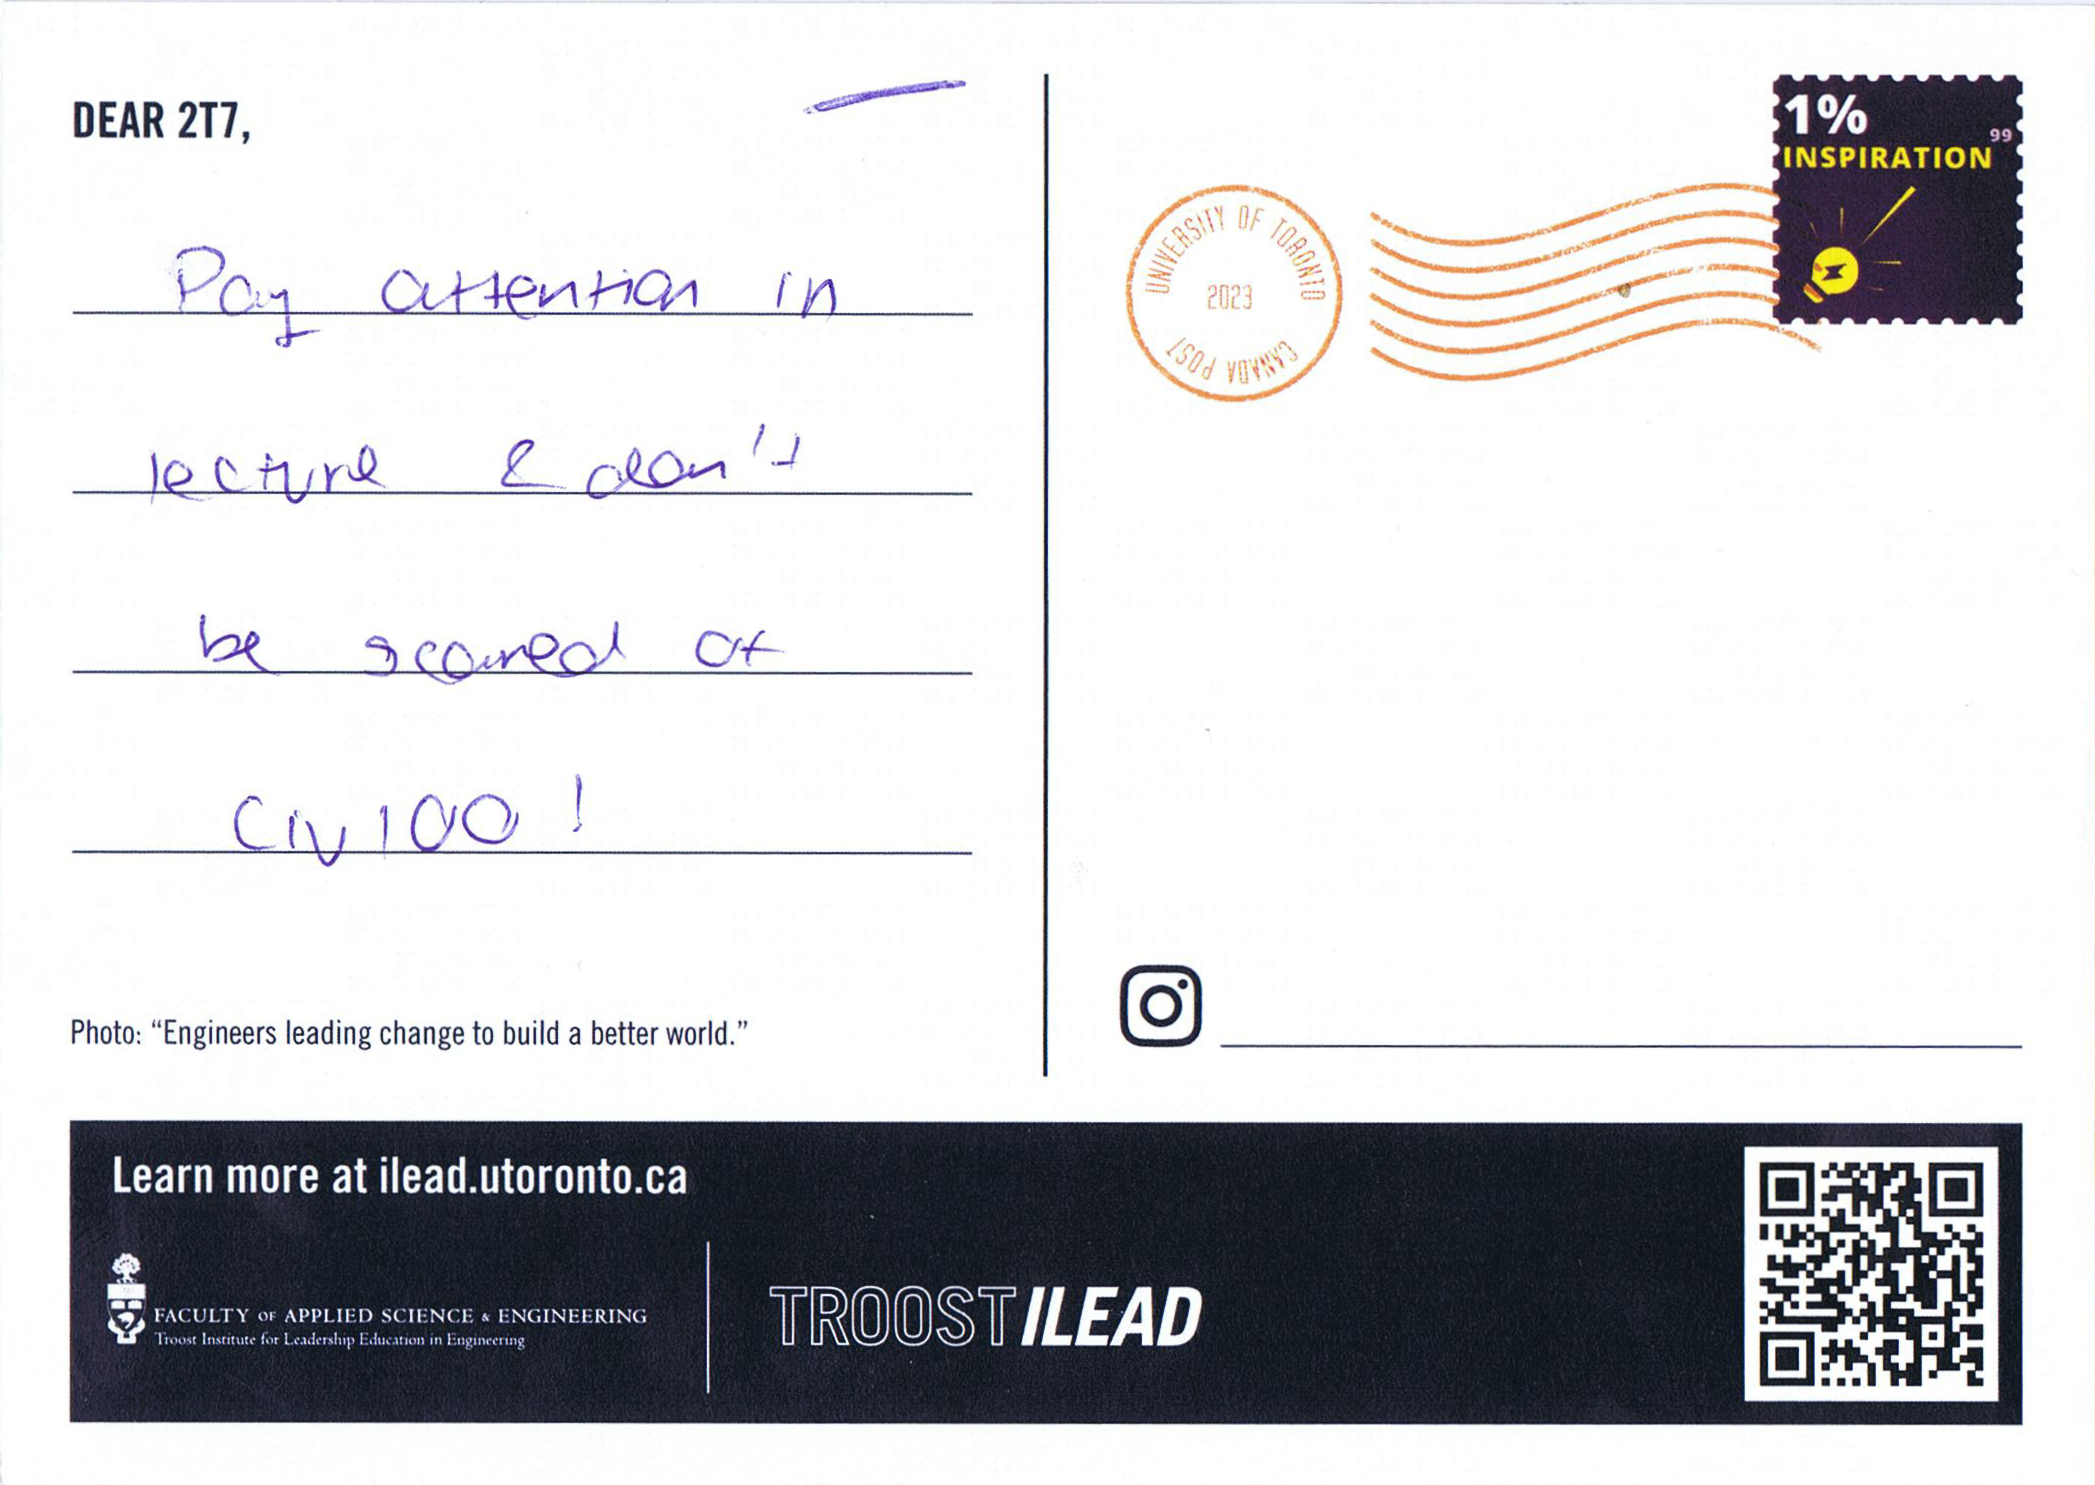 DEAR 2T7,
Pay attention in
lecture & don't
be scared of
Civ100!
Photo: “Engineers leading change to build a better world.”
1%
99
INSPIRATION
UNIVERSITY OF TORONTO
2023
CANADA POST
Learn more at ilead.utoronto.ca
FACULTY OF APPLIED SCIENCE & ENGINEERING
Troost Institute for Leadership Education in Engineering
TROOST ILEAD